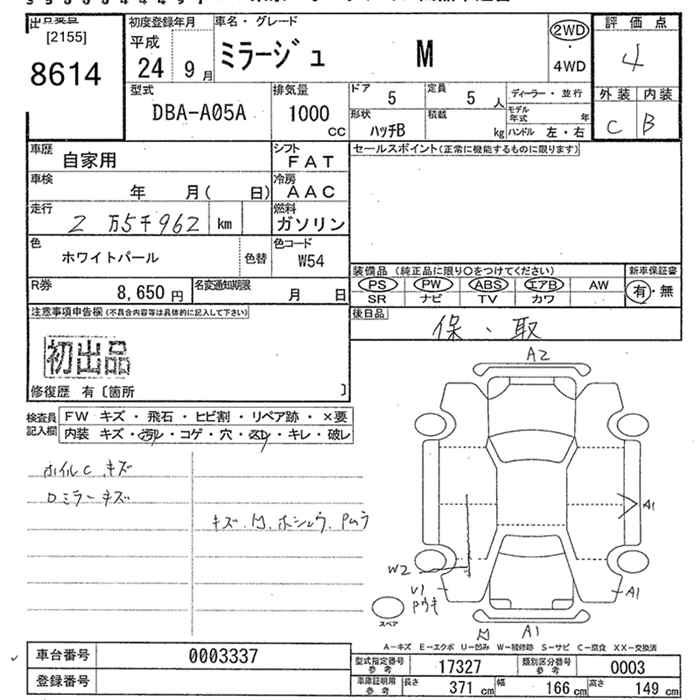 出品票
[2155]
8614
初度登録年月
平成
24 9月
車名・グレード
ミラージュ M
2WD
・
4WD
評価点
4
外装 内装
C B
型式
DBA-A05A
排気量
1000
CC
ドア
5
定員
5 人
形状
ハッチB
積載
kg
ディーラー・並行
モデル年式 年
ハンドル 左・右
車歴
自家用
シフト
FAT
車検
年 月( 日)
冷房
AAC
走行
2万5千962 km
燃料
ガソリン
色
ホワイトパール
色替
色コード
W54
R券
8,650 円
名変通知期限
月 日
セールスポイント(正常に機能するものに限ります)
装備品 (純正品に限り○をつけてください)
PS PW ABS エアB AW
SR ナビ TV カワ
新車保証書
有・無
後日品
保・取
注意事項申告欄(不具合内容等は具体的に記入して下さい)
初出品
修復歴 有〔箇所 〕
検査員
記入欄
FW キズ・飛石・ヒビ割・リペア跡・×要
内装 キズ・汚レ・コゲ・穴・スレ・キレ・破レ
ホイルC キズ
Dミラーキズ
キズ. 凹. ホシュウ. Pムラ
A2
A1
W2
U1
Pウキ
A1
スペア
凹 A1
A-キズ E-エクボ U-凹み W-補修跡 S-サビ C-腐食 XX-交換済
車台番号
0003337
登録番号
型式指定番号
参考
17327
類別区分番号
参考
0003
車庫証明用
参考
長さ 371 cm
幅 166 cm
高さ 149 cm